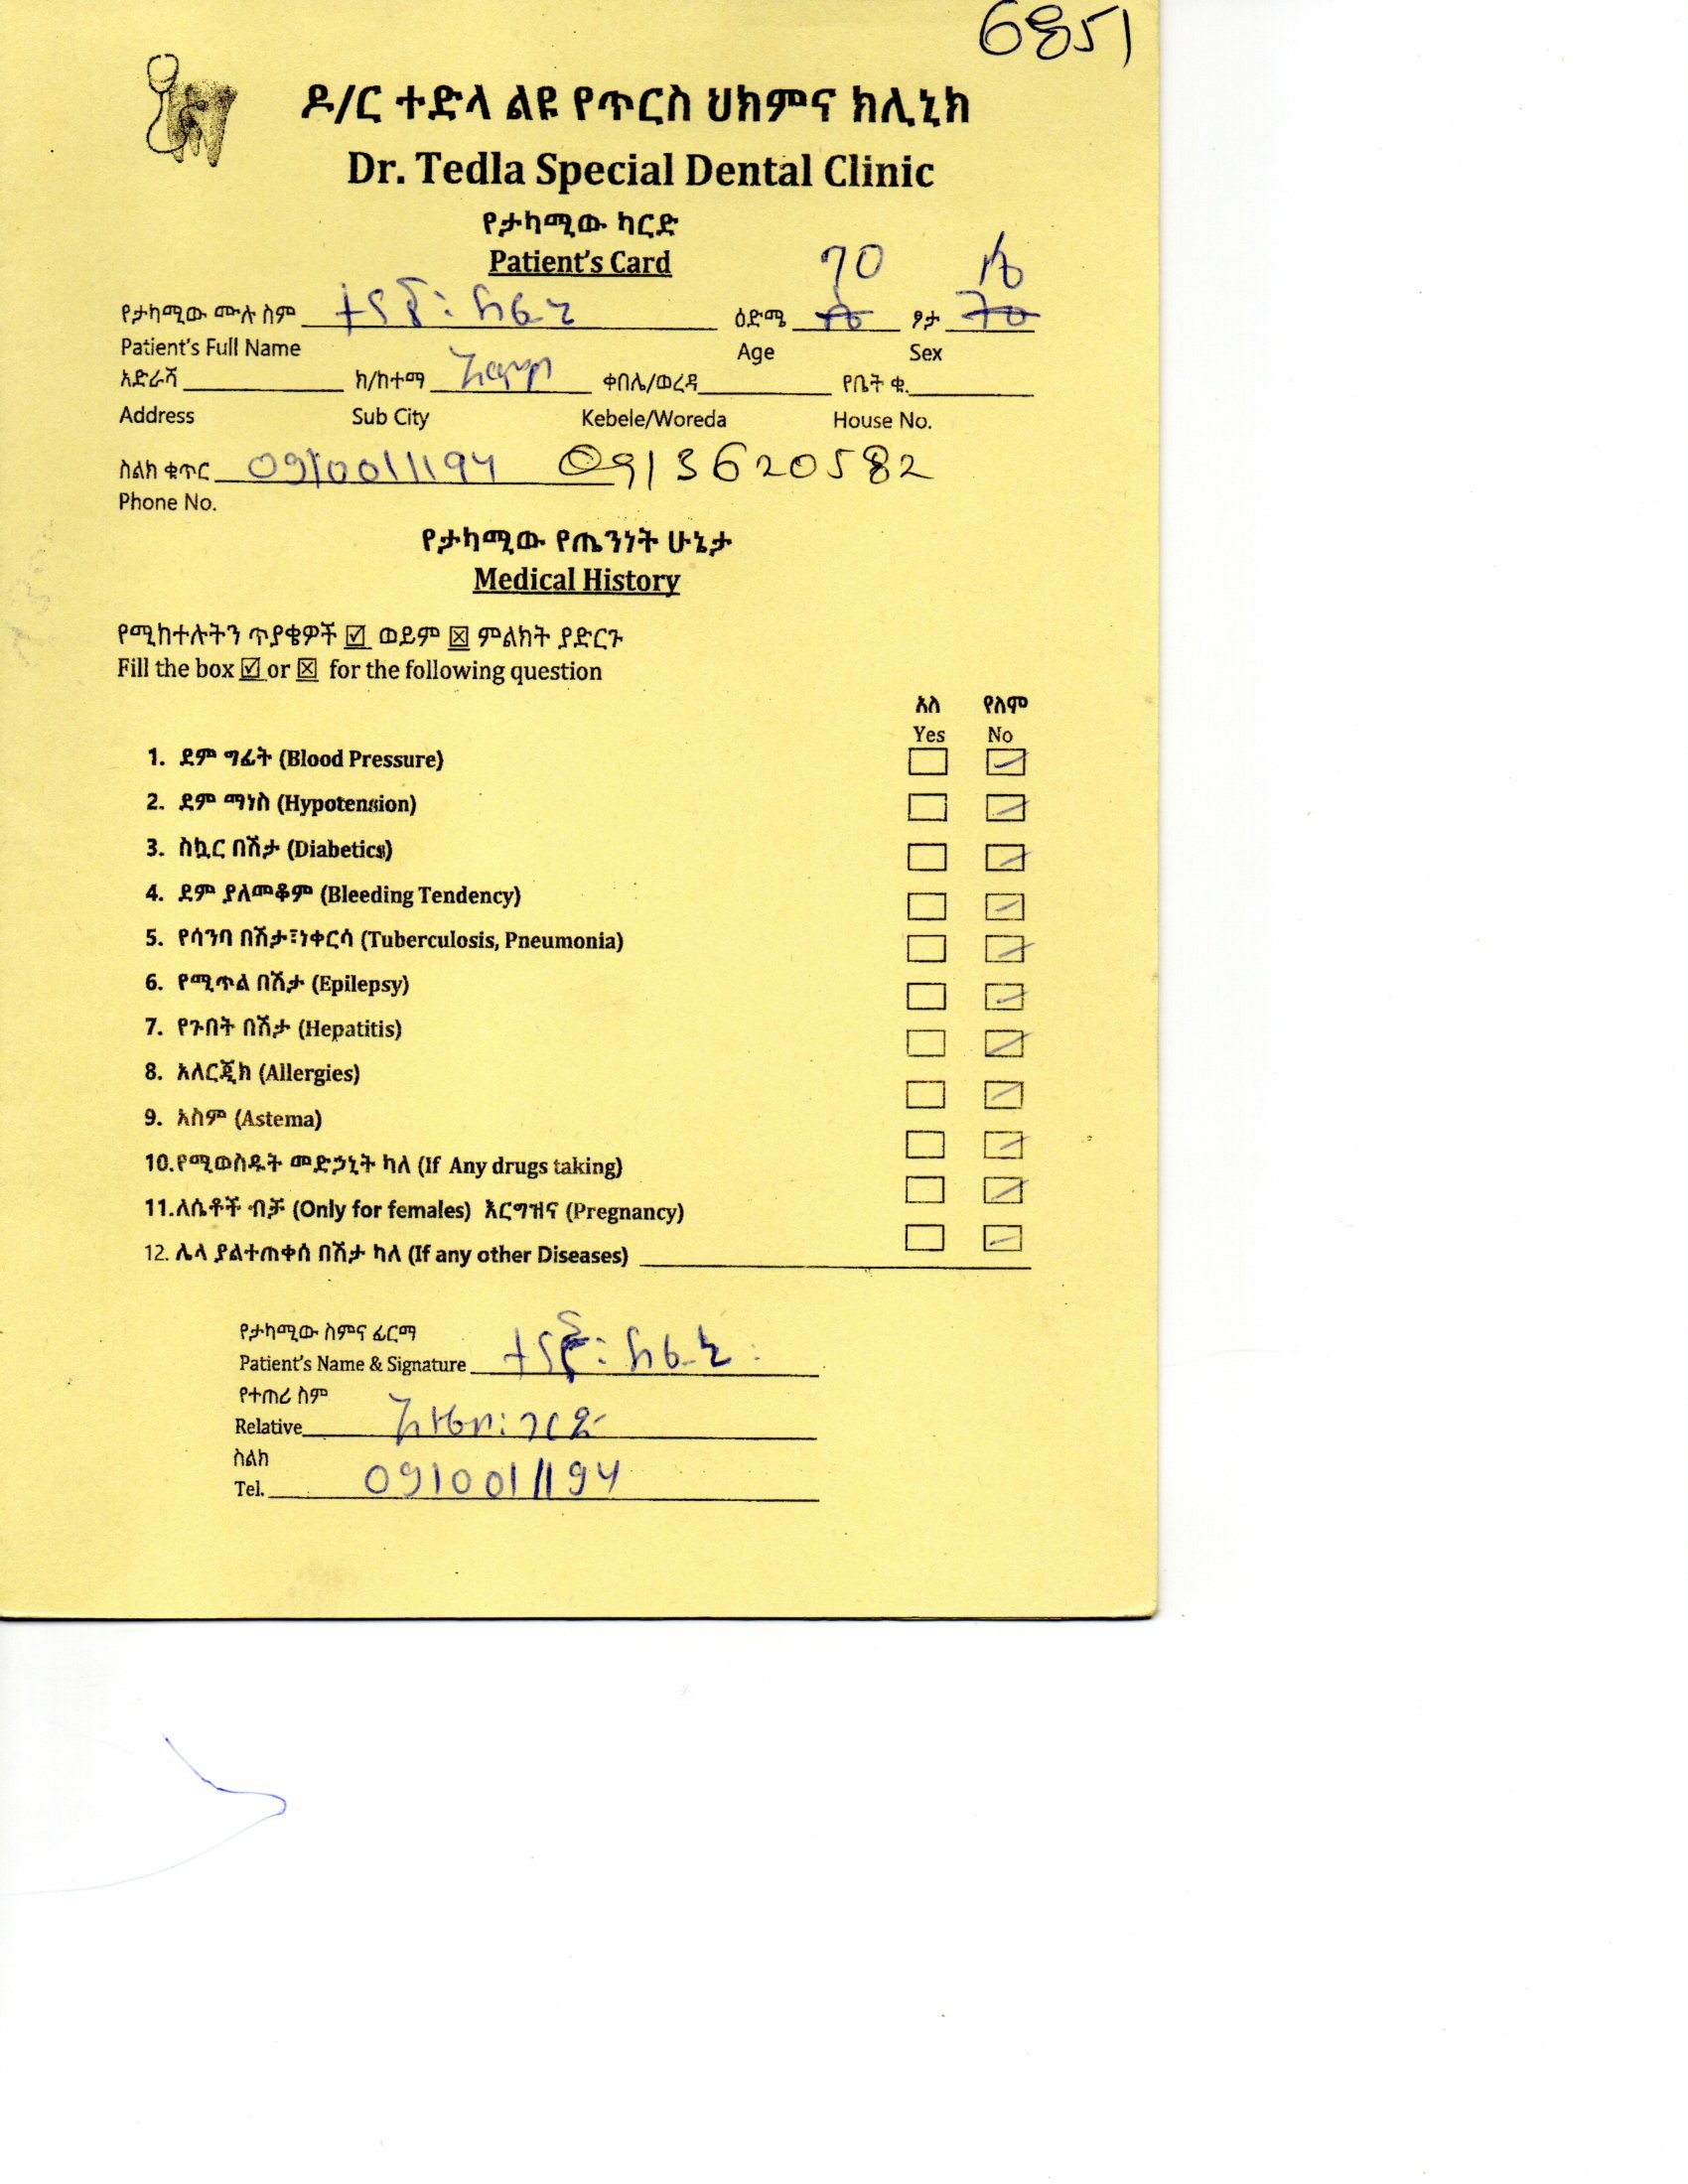 6851
ዶ/ር ተድላ ልዩ የጥርስ ህክምና ክሊኒክ
Dr. Tedla Special Dental Clinic
የታካሚው ካርድ
Patient's Card
የታካሚው ሙሉ ስም ዕድሜ 70 ፆታ
Patient's Full Name Age Sex
አድራሻ ክ/ከተማ ቀበሌ/ወረዳ የቤት ቁ.
Address Sub City Kebele/Woreda House No.
ስልክ ቁጥር 0910011194 0913620582
Phone No.
የታካሚው የጤንነት ሁኔታ
Medical History
የሚከተሉትን ጥያቄዎች ☑ ወይም ☒ ምልክት ያድርጉ
Fill the box ☑ or ☒ for the following question
አለ የለም
Yes No
1. ደም ግፊት (Blood Pressure)
2. ደም ማነስ (Hypotension)
3. ስኳር በሽታ (Diabetics)
4. ደም ያለመቆም (Bleeding Tendency)
5. የሳንባ በሽታ፣ነቀርሳ (Tuberculosis, Pneumonia)
6. የሚጥል በሽታ (Epilepsy)
7. የጉበት በሽታ (Hepatitis)
8. አለርጂክ (Allergies)
9. አስም (Astema)
10.የሚወስዱት መድኃኒት ካለ (If Any drugs taking)
11.ለሴቶች ብቻ (Only for females) እርግዝና (Pregnancy)
12. ሌላ ያልተጠቀሰ በሽታ ካለ (If any other Diseases)
የታካሚው ስምና ፊርማ
Patient's Name & Signature
የተጠሪ ስም
Relative
ስልክ
Tel. 0910011194